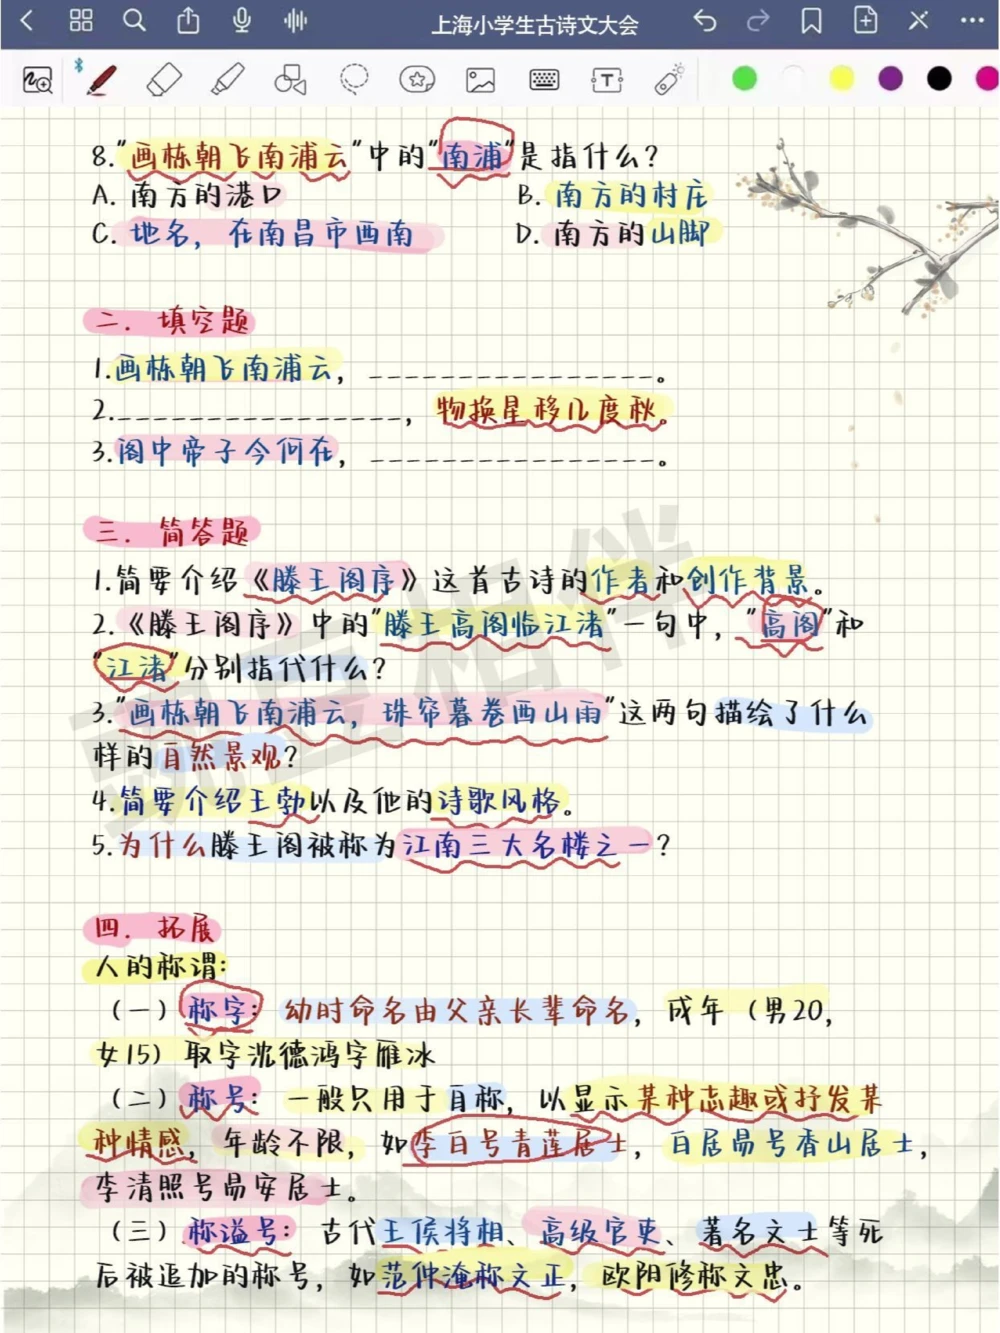 上海小学生古诗文大会
8."画栋朝飞南浦云"中的"南浦"是指什么?
A. 南方的港口 B. 南方的村庄
C. 地名, 在南昌市西南 D. 南方的山脚
二. 填空题
1.画栋朝飞南浦云, __________________。
2.__________________, 物换星移几度秋。
3.阁中帝子今何在, __________________。
三. 简答题
1.简要介绍《滕王阁序》这首古诗的作者和创作背景。
2.《滕王阁序》中的"滕王高阁临江渚"一句中, "高阁"和
"江渚"分别指代什么?
3."画栋朝飞南浦云, 珠帘暮卷西山雨"这两句描绘了什么
样的自然景观?
4.简要介绍王勃以及他的诗歌风格。
5.为什么滕王阁被称为江南三大名楼之一?
四. 拓展
人的称谓:
(一) 称字: 幼时命名由父亲长辈命名, 成年 (男20,
女15) 取字沈德鸿字雁冰
(二) 称号: 一般只用于自称, 以显示某种志趣或抒发某
种情感, 年龄不限, 如李白号青莲居士, 白居易号香山居士,
李清照号易安居士。
(三) 称谥号: 古代王侯将相、高级官吏、著名文士等死
后被追加的称号, 如范仲淹称文正, 欧阳修称文忠。